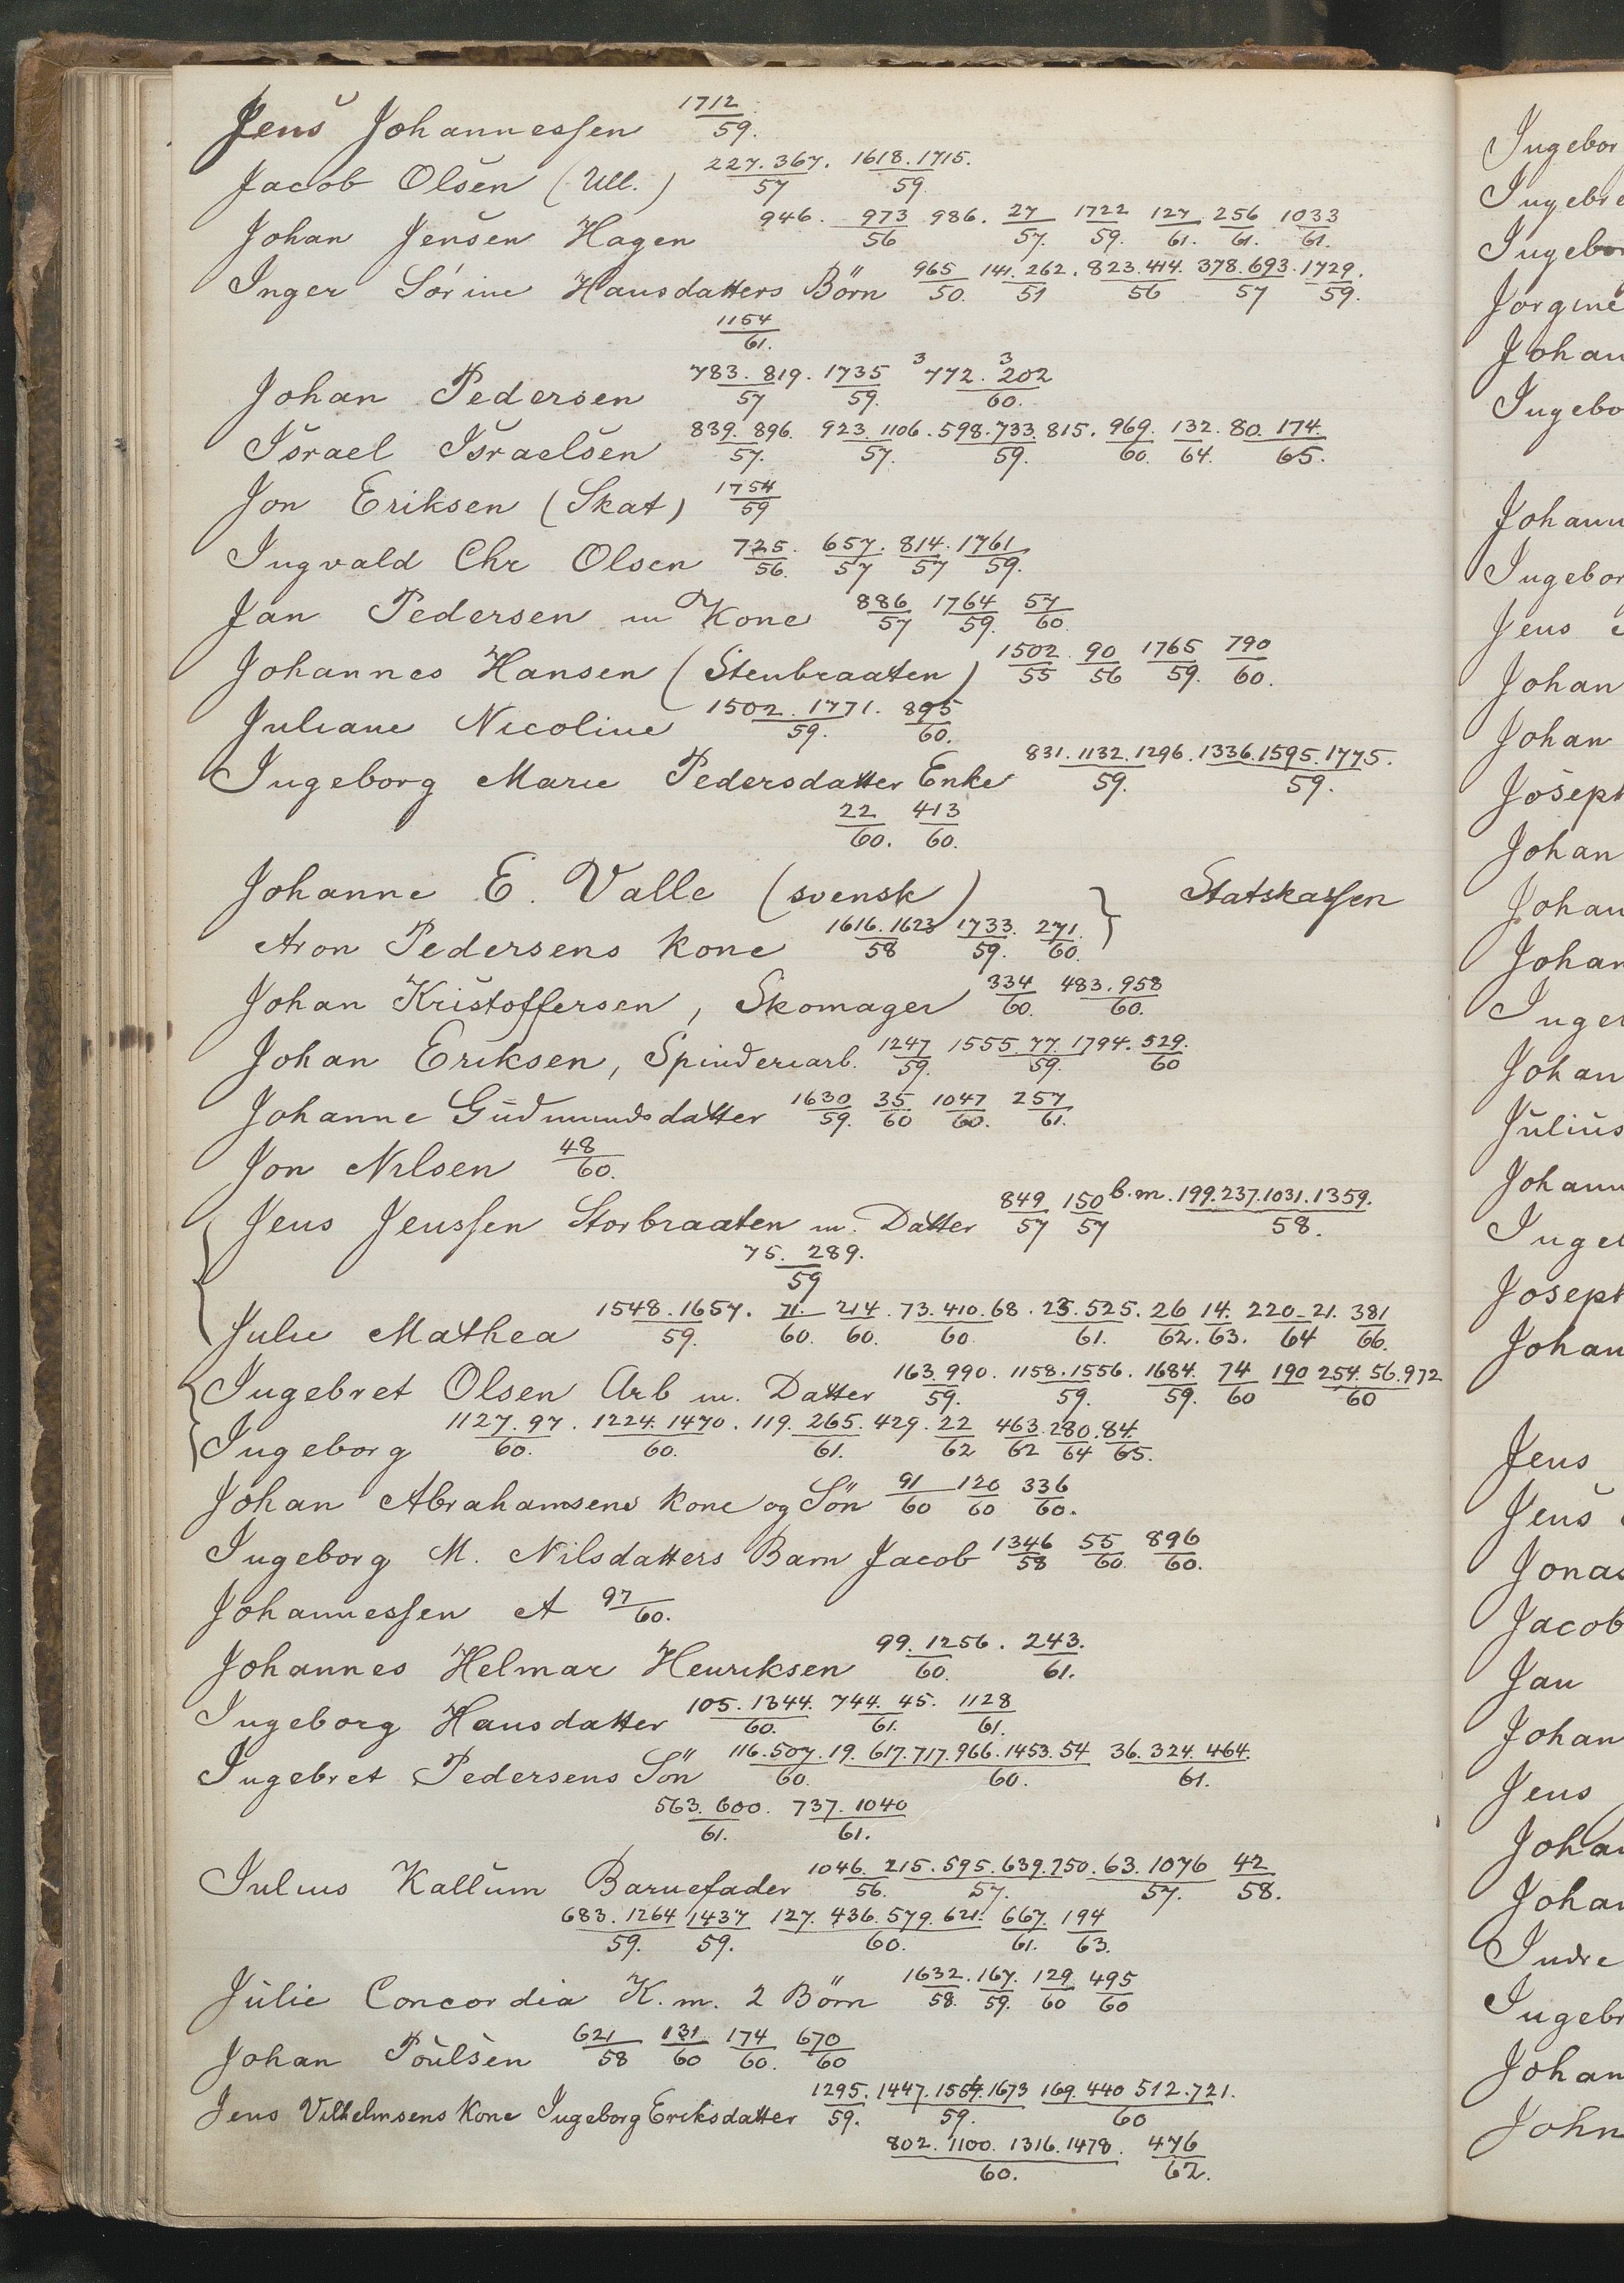 Jens Johannessen 1712/59.
Jacob Olsen (Ull.) 227.367./57 1618.1715./59
Johan Jensen Hagen 946. 973/56 986. 27/57. 1722/59. 127/61. 256/61. 1033/61.
Inger Sörine Hansdatters Börn 965/50. 141.262./51 823.414./56 378.693./57 1729./59.
1154/61.
Johan Pedersen 783.819./57 1735/59. 3 772. 3 202/60.
Israel Israelsen 839.896./57. 923.1106./57. 598.733.815./59. 969./60. 132./64. 80.174./65.
Jon Eriksen (Skat) 1754/59
Ingvald Chr Olsen 725./56. 657./57 814./57 1761/59.
Jan Pedersen m Kone 886/57 1764/59. 57/60
Johannes Hansen (Stenbraaten) 1502/55 90/56 1765/59. 790/60.
Juliane Nicoline 1502.1771./59. 895/60.
Ingeborg Marie Pedersdatter Enke 831.1132.1296./59. 1336.1595.1775./59.
22/60. 413/60.
Johanne E. Valle (svensk) } Statskassen
Aron Pedersens kone 1616.1623/58 1733./59. 271./60.
Johan Kristoffersen, Skomager 334/60. 483.958/60.
Johan Eriksen, Spinderiarb. 1247/59. 1555.77.1794./59. 529./60
Johanne Gudmundsdatter 1630/59. 35/60 1047/60. 257/61.
Jon Nilsen 48/60.
Jens Jenssen Storbraaten m. Datter 849/57 150/57 b.m. 199.237.1031.1359./58.
75.289./59
Julie Mathea 1548.1657./59. 71./60. 214./60. 73.410.68./60 23.525./61. 26/62. 14./63. 220.21./64 381/66.
Ingebret Olsen Arb m. Datter 163.990./59. 1158.1556./59. 1684./59. 74/60 190 254.56.972/60
Ingeborg 1127.97./60. 1224.1470./60. 119.265.429./61. 22/62 463./62 280./64 84./65.
Johan Abrahamsens kone og Sön 91/60 120/60 336/60.
Ingeborg M. Nilsdatters Barn Jacob 1346/58 55/60. 896/60.
Johannessen A 97/60.
Johannes Helmar Henriksen 99.1256./60. 243./61.
Ingeborg Hansdatter 105.1344./60. 744.45./61. 1128/61.
Ingebret Pedersens Sön 116.507.19./60. 617.717.966.1453.54/60. 36.324.464./61.
563.600./61. 737.1040/61.
Julius Kallum Barnefader 1046./56. 215.595.639.750./57. 63.1076/57. 42/58.
683.1264/59. 1437/59. 127.436.579.621./60. 667./61. 194/63.
Julie Concordia K.m. 2 Börn 1632./58. 167./59. 129/60 495/60
Johan Poulsen 621/58 131./60 174/60. 670/60
Jens Vilhelmsens Kone Ingeborg Eriksdatter 1295./59. 1447. 1673/59. 169.440 512.721./60
802.1100.1316.1478./60. 476/62.
Jorgine
Jens
Johan
Johan
Johan
Julius
Jens
Jens
Jacob
Jan
Johan
Jens
Johan